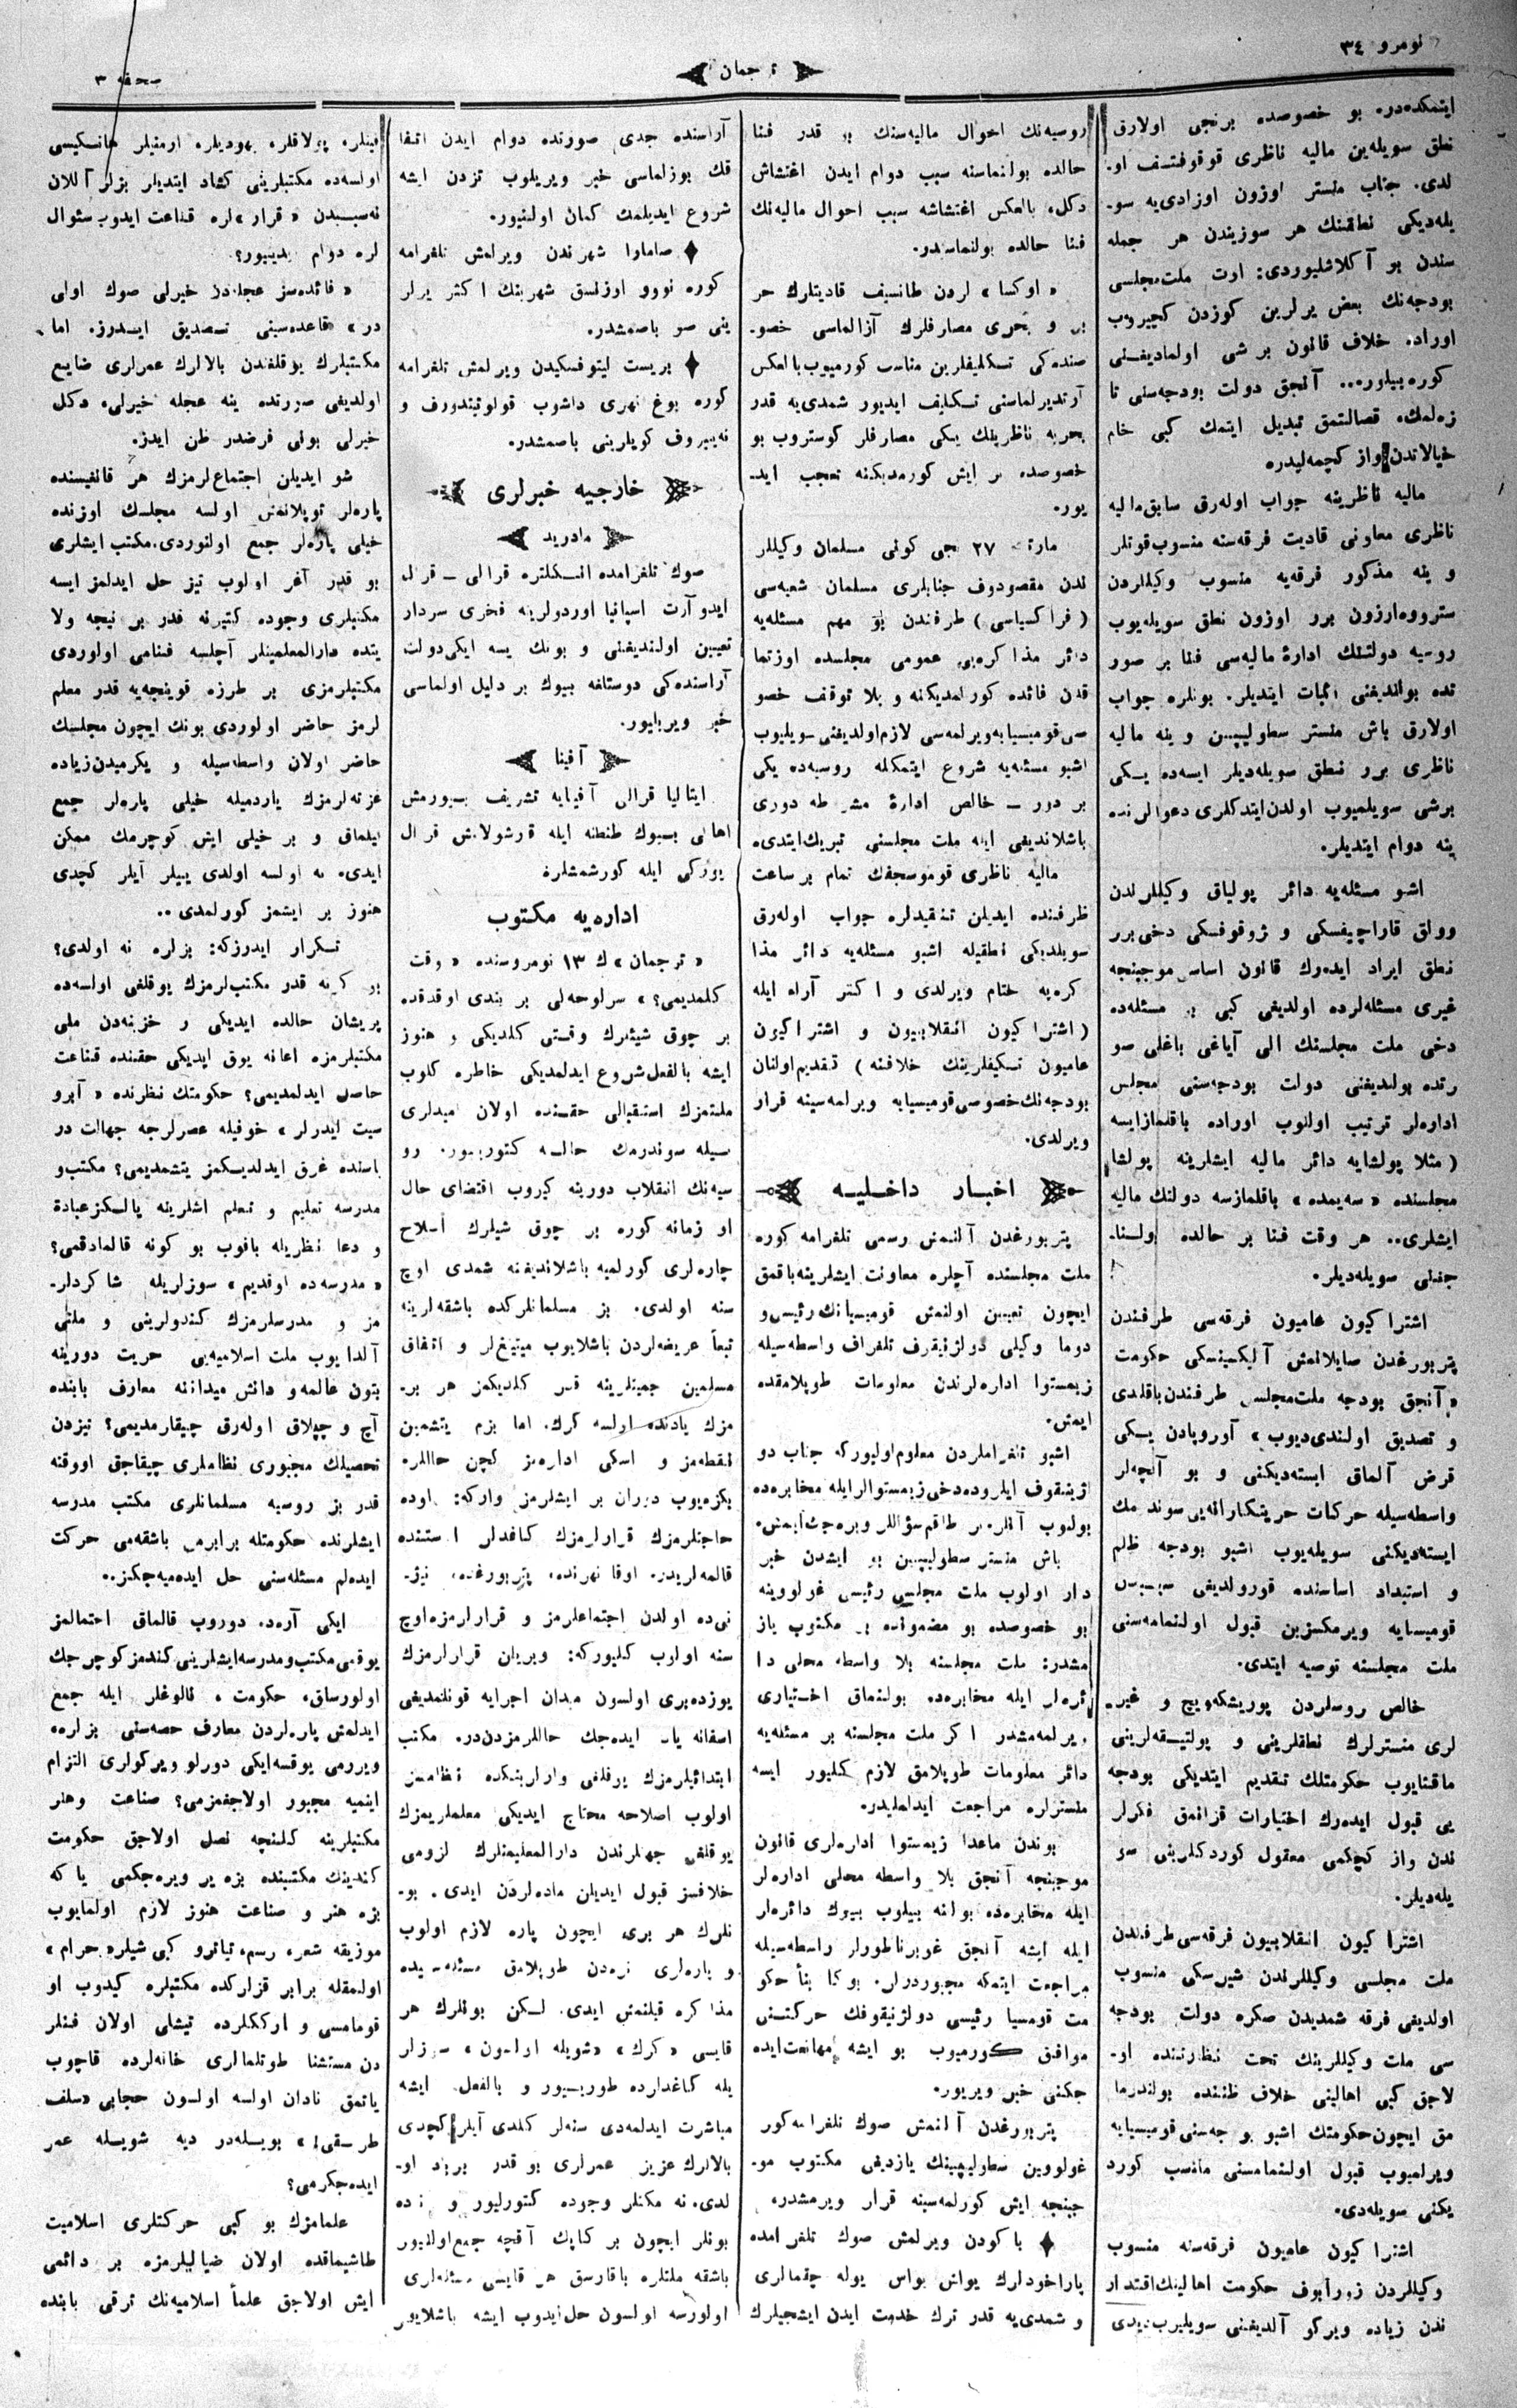 نومرو ٣٤
ترجمان
صحفه ٣
ایتمکده‌در. بو خصوصده برنجی اولارق
نطق سویله‌ین مالیه ناظری قوقوفتسف او-
لدی. جناب منستر اوزون اوزادی‌یه سو-
یله‌دیکی نطقنك هر سوزیندن هر جمله
سندن بو آکلاشلیوردی: اوت ملت‌مجلسی
بودجه‌نك بعض یرلرین کوزدن کچیروب
اوراده خلاف قانون بر شی اولمادیغنی
کوره‌بیلور... آنجق دولت بودجه‌سنی تا
زه‌لمك، قصالتمق تبدیل ایتمك کبی خام
خیالاتدن واز کچمه‌لیدر.
مالیه ناظرینه جواب اوله‌رق سابق مالیه
ناظری معاونی قادیت فرقه‌سنه منسوب قوتلر
و ینه مذکور فرقه‌یه منسوب وکیللردن
سترووه‌آرزون برر اوزون نطق سویله‌یوب
روسیه دولتنك ادارهٔ مالیه‌سی فنا بر صور
تده بولندیغنی اثبات ایتدیلر. بونلره جواب
اولارق باش منستر سطولیپین و ینه مالیه
ناظری برر نطق سویله‌دیلر ایسه‌ده یکی
برشی سویلمیوب اولدن‌ایتدکلری دعوالرنده
ینه دوام ایتدیلر.
اشو مسئله‌یه دائر پولیاق وکیللرلدن
وولق قاراچیفسکی و ژوقوفسکی دخی‌برر
نطق ایراد ایده‌رك قانون اساسی موجبنجه
غیری مسئله‌لرده اولدیغی کبی بو مسئله‌ده
دخی ملت مجلسنك الی آیاغی باغلی صو
رتده بولندیغنی دولت بودجه‌سنی مجلس
اداره‌لر ترتیب اولنوب اوراده باقلمازایسه
( مثلا پولشایه دائر مالیه ایشلرینه پولشا
مجلسنده « سه‌یمده » باقلمازسه دولتك مالیه
ایشلری.. هر وقت فنا بر حالده بولنا-
جغنی سویله‌دیلر.
اشتراکیون عامیون فرقه‌سی طرفندن
پتربورغدن صایلانمش آلیکسینسکی حکومت
« آنجق بودجه ملت‌مجلسی طرفندن‌باقلدی
و تصدیق اولندی‌دیوب » آوروپادن یکی
قرض آلماق ایسته‌دیکنی و بو آقچه‌لر
واسطه‌سیله حرکات حریتکارانه‌یی‌سوند مك
ایسته‌دیکنی سویله‌یوب اشبو بودجه ظلم
و استبداد اساسنده قورولدیغی سببدن
قومیسیایه ویرمکسزین قبول اولنمامه‌سنی
ملت مجلسنه توصیه ایتدی.
خالص روسلردن پوریشکه‌ویچ و غیر-
لری منسترلرك نطقلرینی و پولتیقه‌لرینی
ماقتایوب حکومتلك تقدیم ایتدیکی بودجه
یی قبول ایده‌رك اختیارات قزانمق فکرلر
ندن واز کچکمی معقول کوردکلرینی سو
یله‌دیلر.
اشتراکیون انقلابیون فرقه‌سی طرفندن
ملت مجلسی وکیللرندن شیرسکی منسوب
اولدیغی فرقه شمدیدن صکره دولت بودجه
سی ملت وکیللرینك تحت نظارتنده او-
لاجق کبی اهالینی خلاف ظننده بولندرما
مق ایچون حکومتك اشبو بودجه‌سنی قومیسیایه
ویرلمیوب قبول اولنمامسنی مناسب کورد
یکنی سویله‌دی.
اشتراکیون عامیون فرقه‌سنه منسوب
وکیللردن زورآبوف حکومت اهالینك‌اقتدار
ندن زیاده ویرکو آلدیغنی سویلیوب‌دیدی
روسیه‌نك احوال مالیه‌سنك بو قدر فنا
حالده بولنماسنه سبب دوام ایدن اغتشاش
دکل، بالعکس اغتشاشه سبب احوال مالیه‌نك
فنا حالده بولنماسدر.
« اوکسا » لردن طانسیف قادیتلرك حر
بی و بحری مصارفلرك آزالماسی خصو-
صنده‌کی تکلیفلرین مناسب کورمیوب بالعکس
آرتدیرلماسنی تکلیف ایدیور شمدی‌یه قدر
بحریه ناظرینك یکی مصارفلر کوستروب بو
خصوصده بر ایش کورمدیکنه تعجب اید-
یور.
مارت ٢٧ جی کونی مسلمان وکیللر
ندن مقصودوف جنابلری مسلمان شعبه‌سی
(فراکسیاسی) طرفندن بو مهم مسئله‌یه
دائر مذاکره‌یی عمومی مجلسده اوزتما
قدن فائده کورلمدیکنه و بلا توقف خصو
صی قومیسیایه ویرلمه‌سی لازم اولدیغنی سویلیوب
اشبو مسئله‌یه شروع ایتمکله روسیه‌ده یکی
بر دور — خالص ادارهٔ مشروطه دوری
باشلاندیغی ایله ملت مجلسنی تبریك ایتدی.
مالیه ناظری قوقوسجفك تمام بر ساعت
ظرفنده ایدیلن تنقیدلره جواب اوله‌رق
سویلدیکی نطقیله اشبو مسئله‌یه دائر مذا
کره‌یه ختام ویرلدی و اکثر آراء ایله
( اشتراکیون انقلابیون و اشتراکیون
عامیون تکلیفلرینك خلافنه ) تقدیم اولنان
بودجه‌نك خصوصی قومیسیایه ویرلمه‌سینه قرار
ویرلدی.
اخبار داخلیه
پتربورغدن آلنمش رسمی تلغرامه کوره
ملت مجلسنده آچلره معاونت ایشلرینه باقمق
ایچون تعیین اولنمش قومیسیانك رئیسی و
دوما وکیلی دولژنیقوف تلغراف واسطه‌سیله
زیمستوا اداره‌لرندن معلومات طوپلامقده
ایمش.
اشبو تلغراملردن معلوم اولیورکه جناب دو
لژنیقوف ایلروده دخی زیمستوالر ایله مخابره‌ده
بولنوب آنلره بر طاقم سؤاللر ویره‌جك‌ایمش.
باش منستر سطولیپین بو ایشدن خبر
دار اولوب ملت مجلسی رئیسی غولووینه
بو خصوصده بو مضمونده بر مکتوب یاز
مشدر: ملت مجلسنه بلا واسطه محلی دا
ئره‌لر ایله مخابره‌ده بولنماق اختیاری
ویرلمه‌مشدر اکر ملت مجلسنه بر مسئله‌یه
دائر معلومات طوپلامق لازم کلیور ایسه
منسترلره مراجعت ایدلملیدر.
بوندن ماعدا زیمستوا اداره‌لری قانون
موجبنجه آنجق بلا واسطه محلی اداره‌لر
ایله مخابره‌ده بولنه بیلوب بیوك دائره‌لر
ایله ایشه آنجق غوبرناطورلر واسطه‌سیله
مراجعت ایتمکه مجبوردرلر. بوکا بناً حکو
مت قومیسیا رئیسی دولژنیقوفك حرکتنی
موافق کورمیوب بو ایشه ممانعت ایده
جکنی خبر ویریور.
پتربورغدن آلنمش صوك تلغرامه کور
غولووین سطولیپینك یازدیغی مکتوب مو-
جبنجه ایش کورلمه‌سینه قرار ویرمشدر.
♦ باکودن ویرلمش صوك تلغرامده
پاراخودلرك یواش یواش یوله چقمالری
و شمدی‌یه قدر ترك خدمت ایدن ایشجیلرك
آراسنده جدی صورتده دوام ایدن اتفا
قك بوزلماسی خبر ویریلوب تزدن ایشه
شروع ایدیلمك کمان اولنیور.
♦ صامارا شهرندن ویرلمش تلغرامه
کوره نووو اوزنسق شهرینك اکثر یرلر
ینی صو باصمشدر.
♦ بریست لیتوفسکیدن ویرلمش تلغرامه
کوره بوغ نهری داشوب قولوتیندورف و
نه‌بیروف کویلرینی باصمشدر.
خارجیه خبرلری
مادرید
صوك تلغرامده انکلتره قرالی — قرال
ایدوآرت اسپانیا اوردولرینه فخری سردار
تعیین اولندیغنی و بونك یسه ایکی دولت
آراسنده‌کی دوستلغه بیوك بر دلیل اولماسی
خبر ویریلیور.
آفینا
ایتالیا قرالی آفینایه تشریف بیورمش
اهالی بیوك طنطنه ایله قارشولامش قرال
یورکی ایله کورشمشلر.
اداره‌یه مکتوب
« ترجمان » ك ١٣ نومروسنده « وقت
کلمدیمی؟ » سرلوحه‌لی بر بندی اوقدقده
بر چوق شیئرك وقتی کلدیکی و هنوز
ایشه بالفعل شروع ایدلمدیکی خاطره کلوب
ملتمزك استقبالی حقنده اولان امیدلری
سیله سوندرمك حاله کتوریور. رو
سیه‌نك انقلاب دورینه کیروب اقتضای حال
او زمانه کوره بر چوق شیلرك اصلاح
چاره‌لری کورلمیه باشلاندیغنه شمدی اوچ
سنه اولدی. بز مسلمانلرکده باشقه‌لرینه
تبعاً عریضه‌لردن باشلایوب میتینغ‌لر و اتفاق
مسلمین جمیتلرینه قدر کلدیکمز هر بر-
مزك یادنده اولسه کرك. اما بزم یتشمین
نقطه‌مز و اسکی اداره‌مز کچن حاللره
بکزه‌یوب دوران بر ایشلرمز وارکه: اوده
حاجتلرمزك قرارلرمزك کاغدلر استنده
قالمه‌لریدر. اوقا نهرنده، پتربورغده، نیژ-
نی‌ده اولدن اجتماعلرمز و قرارلرمزه اوچ
سنه اولوب کلیورکه: ویریلن قرارلرمزك
یوزده‌بری اولسون میدان اجرایه قونلمدیغی
اسفانه یاد ایده‌جك حاللرمزدن‌در. مکتب
ابتدائیلرمزك یوقلغی وارلرینكده نظامسز
اولوب اصلاحه محتاج ایدیکی معلملریمزك
یوقلغی جهتلرندن دارالمعلیمنلرك لزومی
خلافسز قبول ایدیلن ماده‌لردن ایدی. بو-
نلرك هر بری ایچون پاره لازم اولوب
و پاره‌لری نره‌دن طوپلامق مسئله‌سیده
مذاکره قیلنمش ایدی. لکن بونلرك هر
قایسی « کرك » « شویله اولسون » سوزلر
یله کاغدلرده طوریور و بالفعل ایشه
مباشرت ایدلمه‌دی سنه‌لر کلدی آیلر کچدی
بالالرك عزیز عمرلری بو قدر برباد او-
لدی. نه مکتلر وجوده کتورلیور و نه‌ده
بونلر ایچون بر کاپك آقچه جمع اولنیور
باشقه ملتلره باقارسق هر قایسی مسئله‌لری
اولورسه اولسون حل ایدوب ایشه باشلایور
فینلر، پولاقلر، یهودیلر، ارمنیلر هانسکیسی
اولسه‌ده مکتبلرینی کشاد ایتدیلر بزلر آللان
نه‌سببدن « قرار » لره قناعت ایدوب سئوال
لره دوام ایدییور؟
« فائده‌سز عجله‌دن خیرلی صوك اولی
در » قاعده‌سینی تصدیق ایدرز. اما
مکتبلرك یوقلغندن بالالرك عمرلری ضایع
اولدیغی صورتده ینه عجله خیرلی، دکل
خیرلی بونی فرضدر ظن ایدر.
شو ایدیلن اجتماع‌لرمزك هر قانغیسنده
پاره‌لر توپلانمش اولسه مجلسك اوزنده
خیلی پاره‌لر جمع اولنوردی. مکتب ایشلری
بو قدر آغر اولوب تیز حل ایدلمز ایسه
مکتبلری وجوده کتیرنه قدر بر نیجه ولا
یتده دارالمعلمینلر آچلسه فنامی اولوردی
مکتبلرمزی بر طرزه قوینجه‌یه قدر معلم
لرمز حاضر اولوردی بونك ایچون مجلسك
حاضر اولان واسطه‌سیله و یکرمیدن زیاده
غزته‌لرمزك یاردمیله خیلی پاره‌لر جمع
ایلماق و بر خیلی ایش کوچرمك ممکن
ایدی. نه اولسه اولدی ییللر آیلر کچدی
هنوز بر ایشمز کورلمدی..
تکرار ایدرزکه: بزلره نه اولدی؟
بو کونه قدر مکتب‌لرمزك یوقلغی اولسه‌ده
پریشان حالده ایدیکی و خزینه‌دن ملی
مکتبلرمزه اعانه یوق ایدیکی حقنده قناعت
حاصل ایدلمدیمی؟ حکومتك نظرنده « آبرو
سیت ایدرلر » خوفیله عصرلرجه جهالت در
یاسنده غرق ایدلدیکمز یتشمدیمی؟ مکتب و
مدرسه تعلیم و تعلم اشلرینه یالکز عبادة
و دعا نظریله باقوب بو کونه قالمادقمی؟
« مدرسه‌ده اوقدیم » سوزلریله شاکردلر-
مز و مدرسلرمزك کندولرینی و ملتی
آلدایوب ملت اسلامیه‌یی حریت دورینه
بتون عالمه و دانش میداننه معارف بابنده
آچ و چپلاق اوله‌رق چیقارمدیمی؟ تیزدن
تحصیلك مجبوری نظاملری چیقاجق اووقته
قدر بز روسیه مسلمانلری مکتب مدرسه
ایشلرنده حکومتله برابرمی باشقه‌می حرکت
ایده‌لم مسئله‌سنی حل ایده‌میه‌جکز..
ایکی آره‌ده دوروب قالماق احتمالمز
یوقمی مکتب و مدرسه ایشلرینی کندمز کوچرجك
اولورساق، حکومت ، نالوغلر ایله جمع
ایدلمش پاره‌لردن معارف حصه‌سنی بزلره
ویررمی یوقسه ایکی دورلو ویرکولری التزام
ایتمیه مجبور اولاجغمزمی؟ صناعت وهنر
مکتبلرینه کلنجه نصل اولاجق حکومت
کندینك مکتبنده بزه یر ویره‌جکمی یا که
بزه هنر و صناعت هنوز لازم اولمایوب
موزیقه شعر، رسم، تیاترو کبی شیلر« حرام »
اولمقله برابر قزلرکده مکتبلره کیدوب او
قومامسی و ارککلرده تیشلی اولان فنلر
دن مستثنا طوتلمالری خانه‌لرده قاچوب
یاتمق نادان اولسه اولسون حجابی « سلف
طرسقی! » بویله‌در دیه شویله عمر
ایده‌جکرمی؟
علمامزك بو کبی حرکتلری اسلامیت
طاشیماقده اولان ضیالیلرمزه بر دائمی
ایش اولاجق علماً اسلامیه‌نك ترقی بابنده